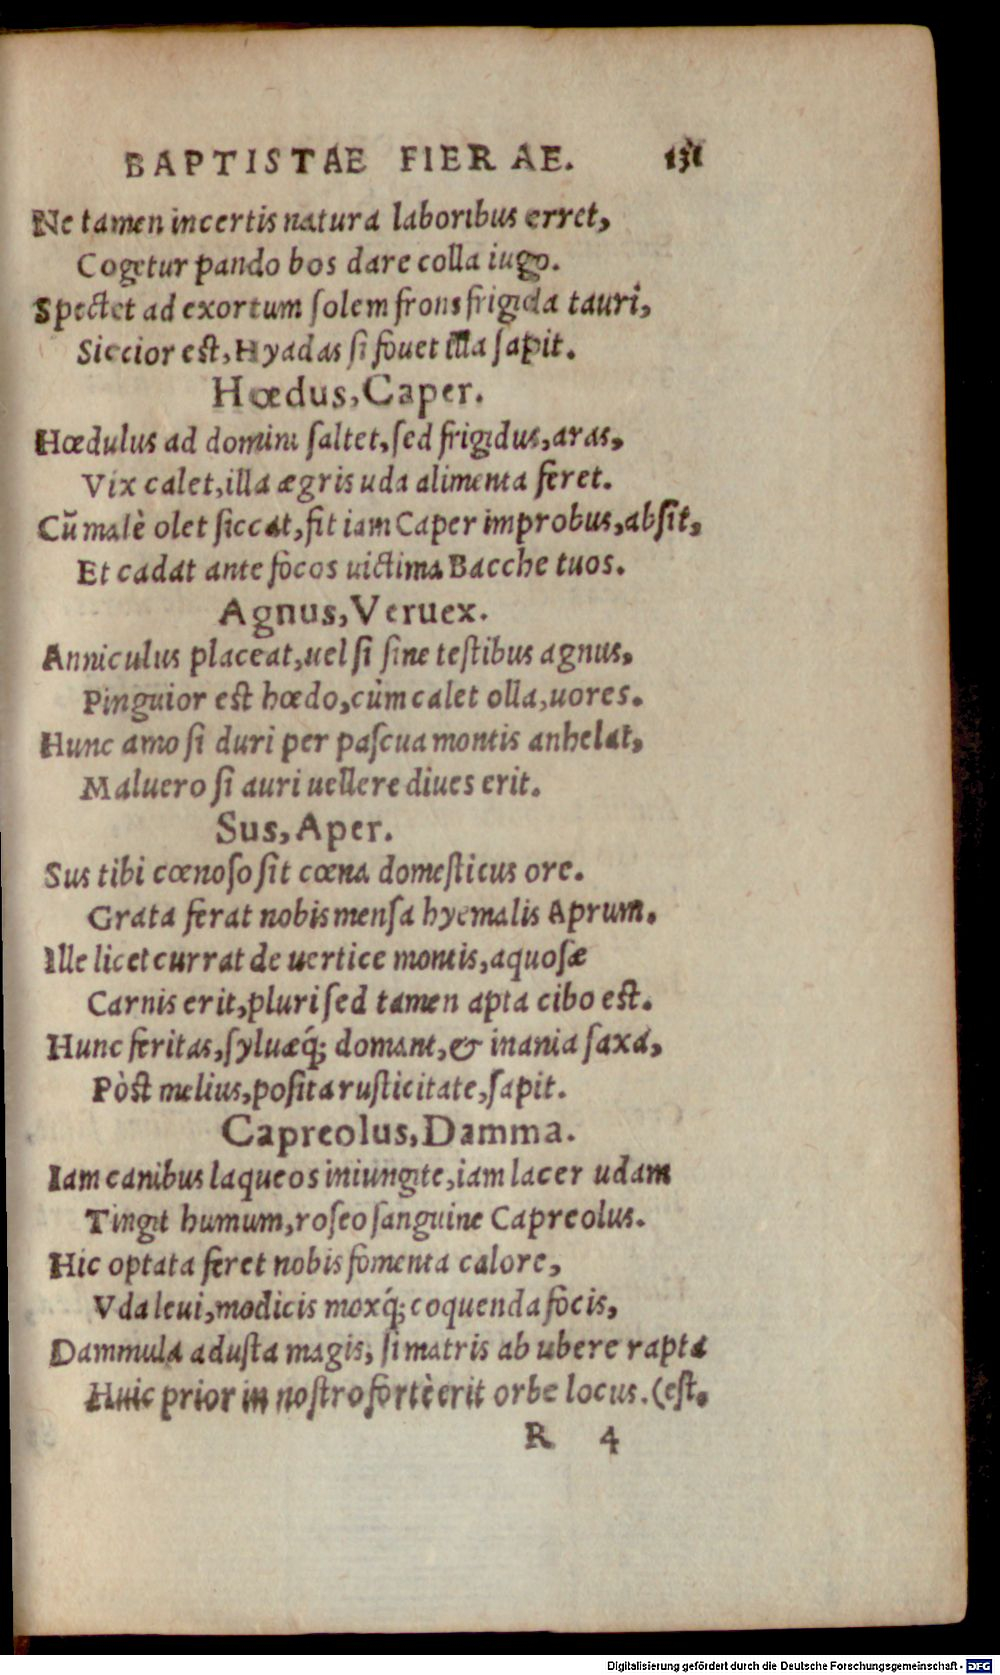 BAPTISTAE FIERAE. 131
Ne tamen incertis natura laboribus erret,
Cogetur pando bos dare colla iugo.
Spectet ad exortum ſolem frons frigida tauri,
Siccior est, Hyadas ſi fouet illa ſapit.
Hœdus, Caper.
Hœdulus ad domini ſaltet, ſed frigidus, aras,
Vix calet, illa ægris uda alimenta feret.
Cũ malè olet ſiccat, fit iam Caper improbus, abſit,
Et cadat ante focos uictima Bacche tuos.
Agnus, Veruex.
Anniculus placeat, uel ſi ſine teſtibus agnus,
Pinguior est hœdo, cùm calet olla, uores.
Hunc amo ſi duri per paſcua montis anhelat,
Maluero ſi auri uellere diues erit.
Sus, Aper.
Sus tibi cœnoſo ſit cœna domeſticus ore.
Grata ferat nobis menſa hyemalis Aprum.
Ille licet currat de uertice montis, aquoſæ
Carnis erit, pluri ſed tamen apta cibo est.
Hunc feritas, ſyluæq́; domant, & inania ſaxa,
Pòst melius, poſita ruſticitate, ſapit.
Capreolus, Damma.
Iam canibus laqueos iniungite, iam lacer udam
Tingit humum, roſeo ſanguine Capreolus.
Hic optata feret nobis fomenta calore,
Vda leui, modicis moxq́; coquenda focis,
Dammula aduſta magis, ſi matris ab ubere rapta
Huic prior in noſtro fortè erit orbe locus. (eſt.
R 4
Digitalisierung gefördert durch die Deutsche Forschungsgemeinschaft - DFG